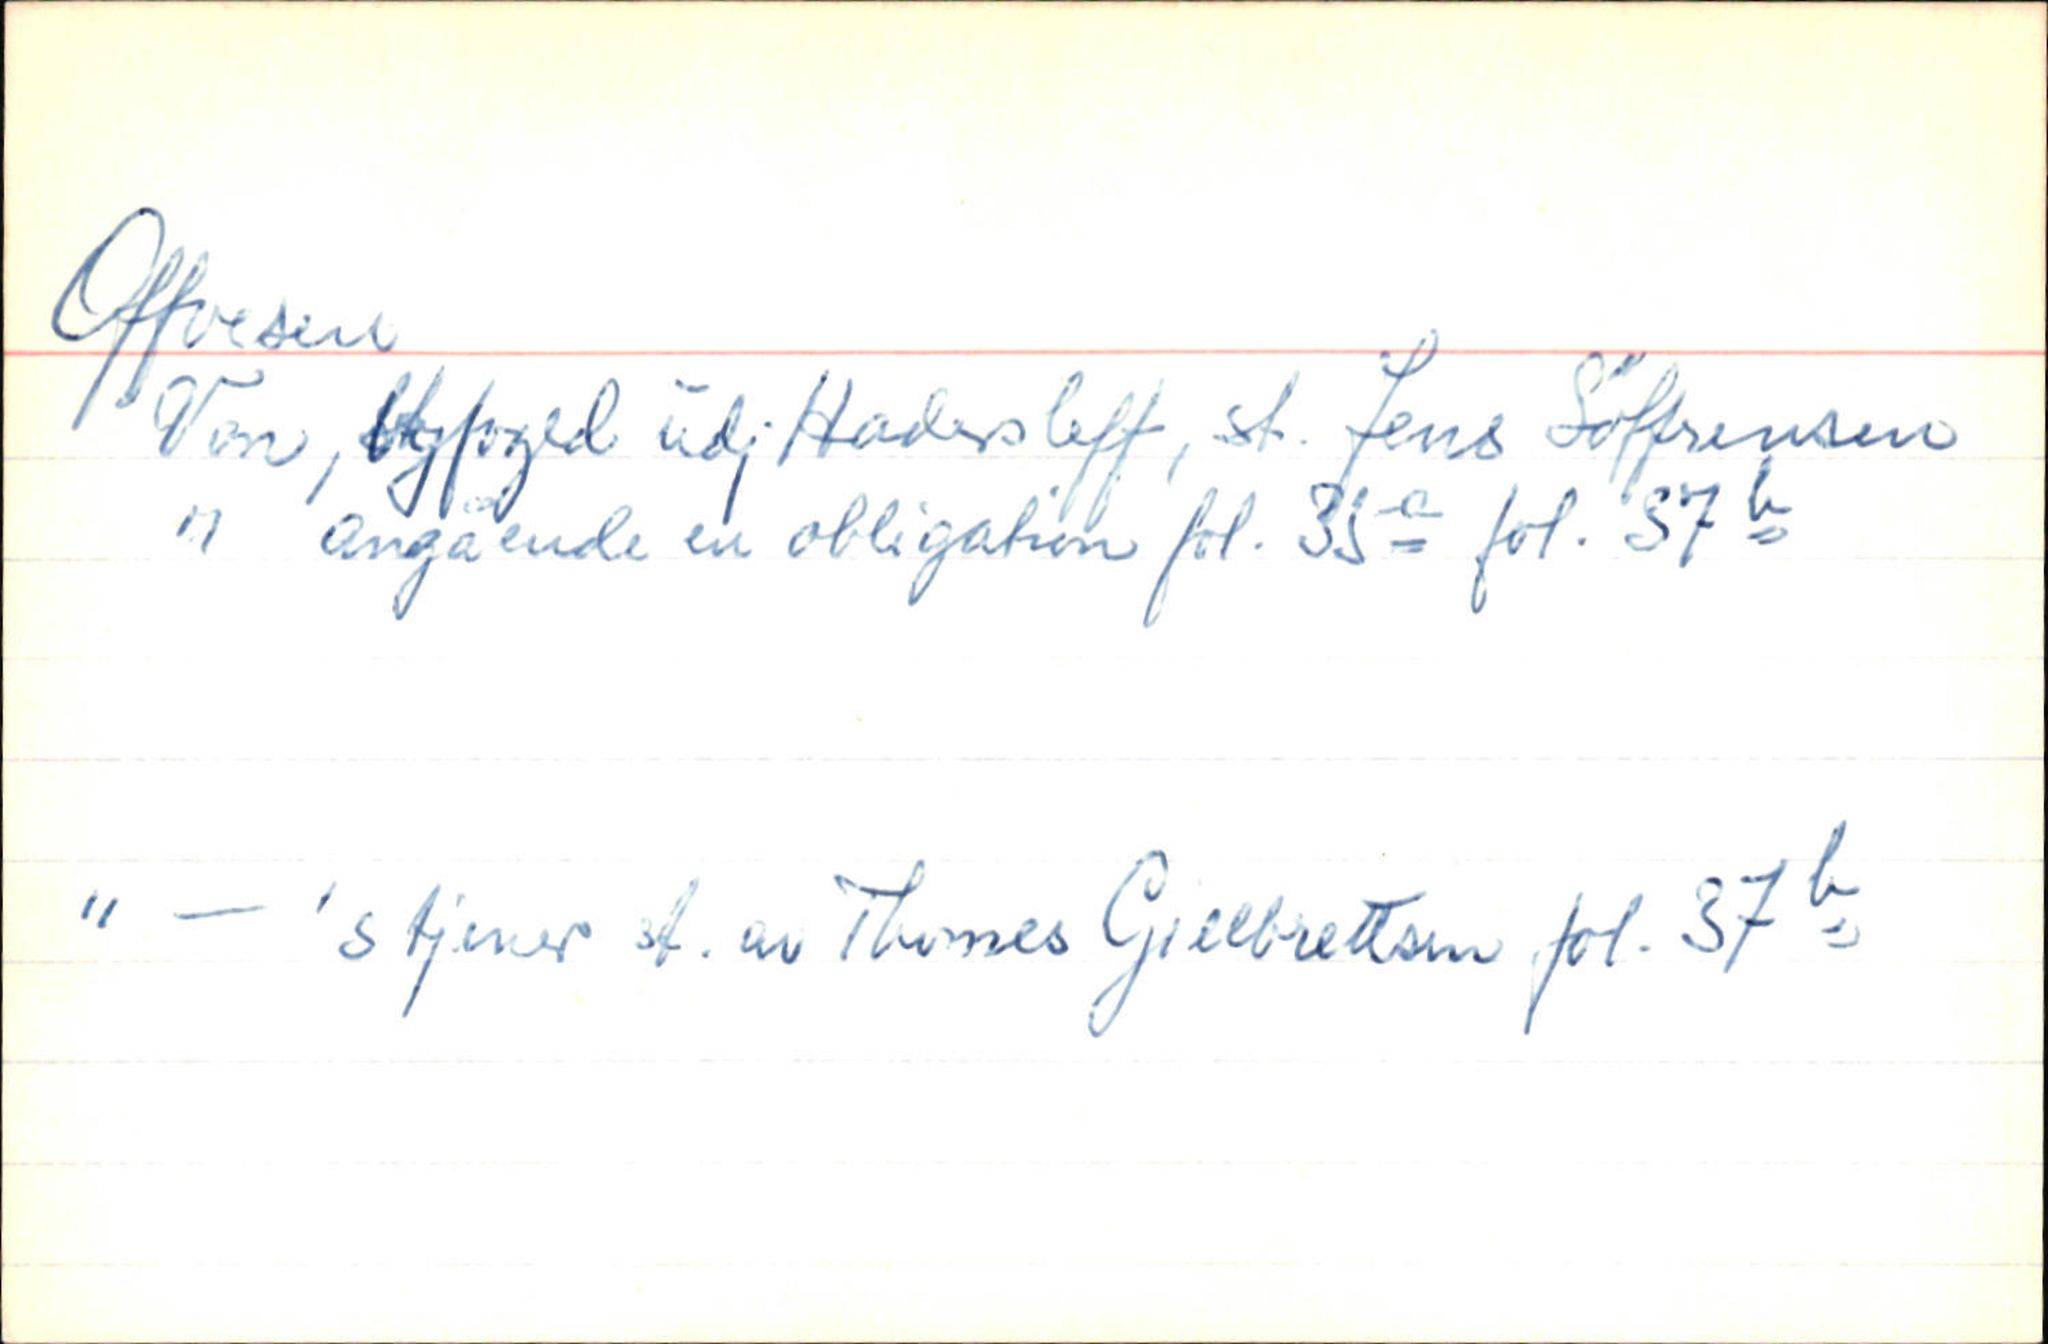 Offvesen
Von, Byfoged udj Hadersleff, st. Jens Söffrensen
" angående en obligation fol. 35a fol. 37b
" — 's tjener st. av Thomes Gielbrettsen fol. 37b